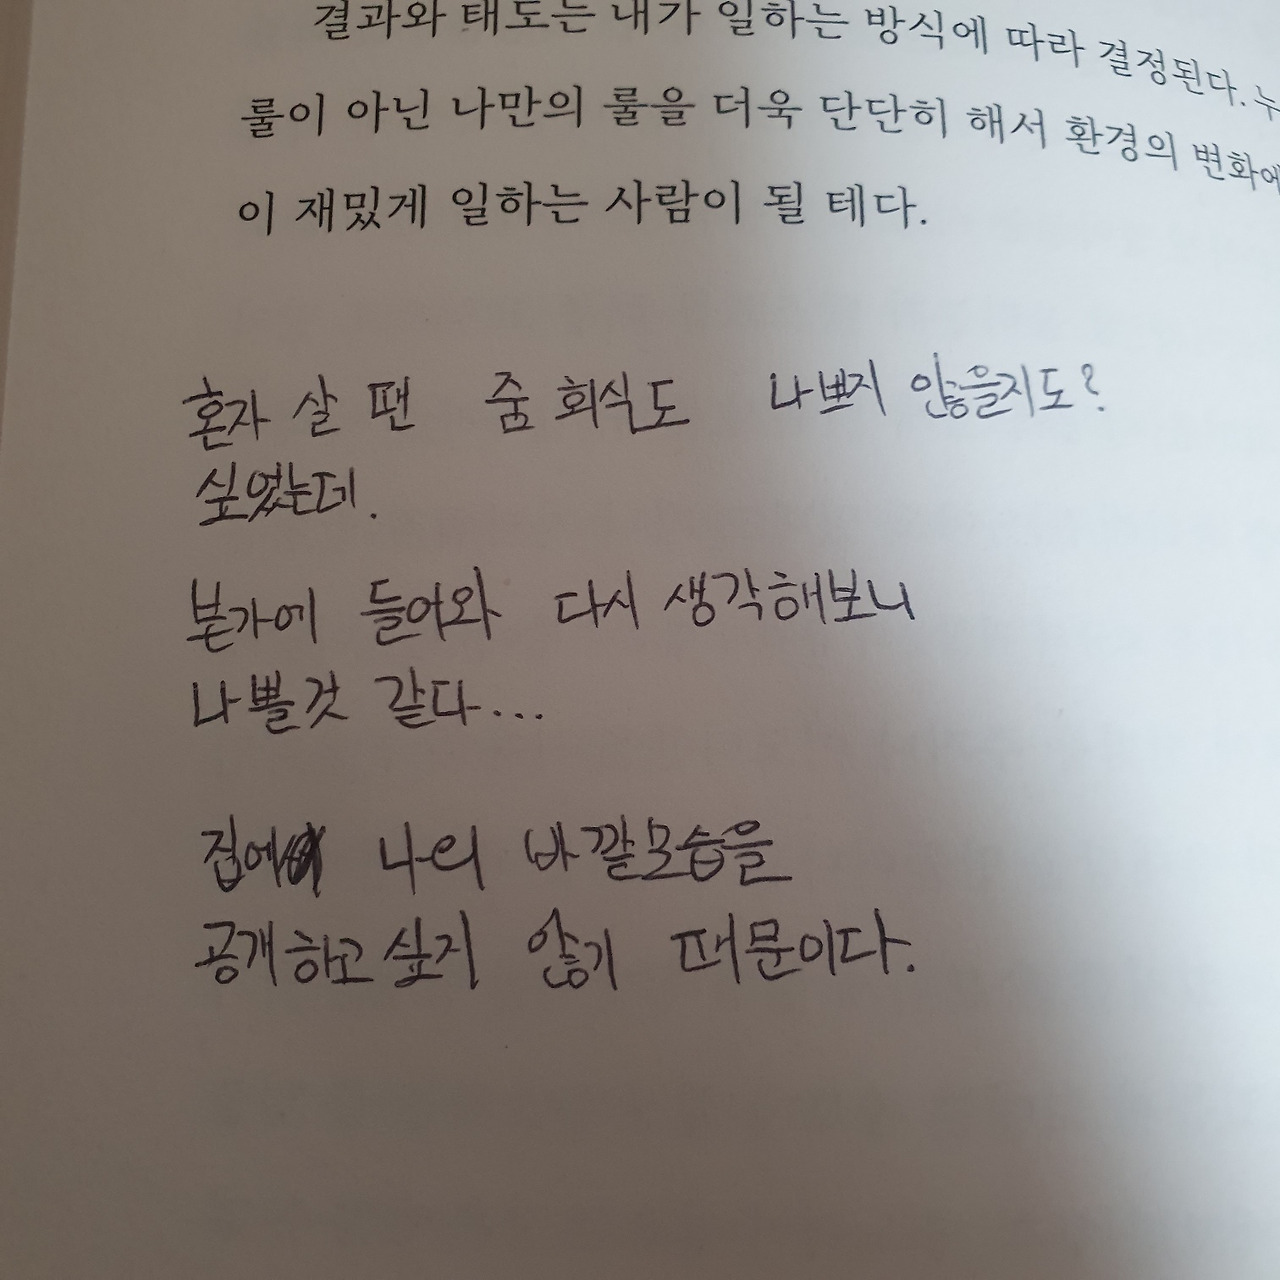 결과와 태도는 내가 일하는 방식에 따라 결정된다. 누
룰이 아닌 나만의 룰을 더욱 단단히 해서 환경의 변화에
이 재밌게 일하는 사람이 될 테다.
혼자 살 땐 줌 회식도 나쁘지 않을지도?
싶었는데.
본가에 들어와 다시 생각해보니
나쁠것 같다...
집에 나의 바깥모습을
공개하고 싶지 않기 때문이다.